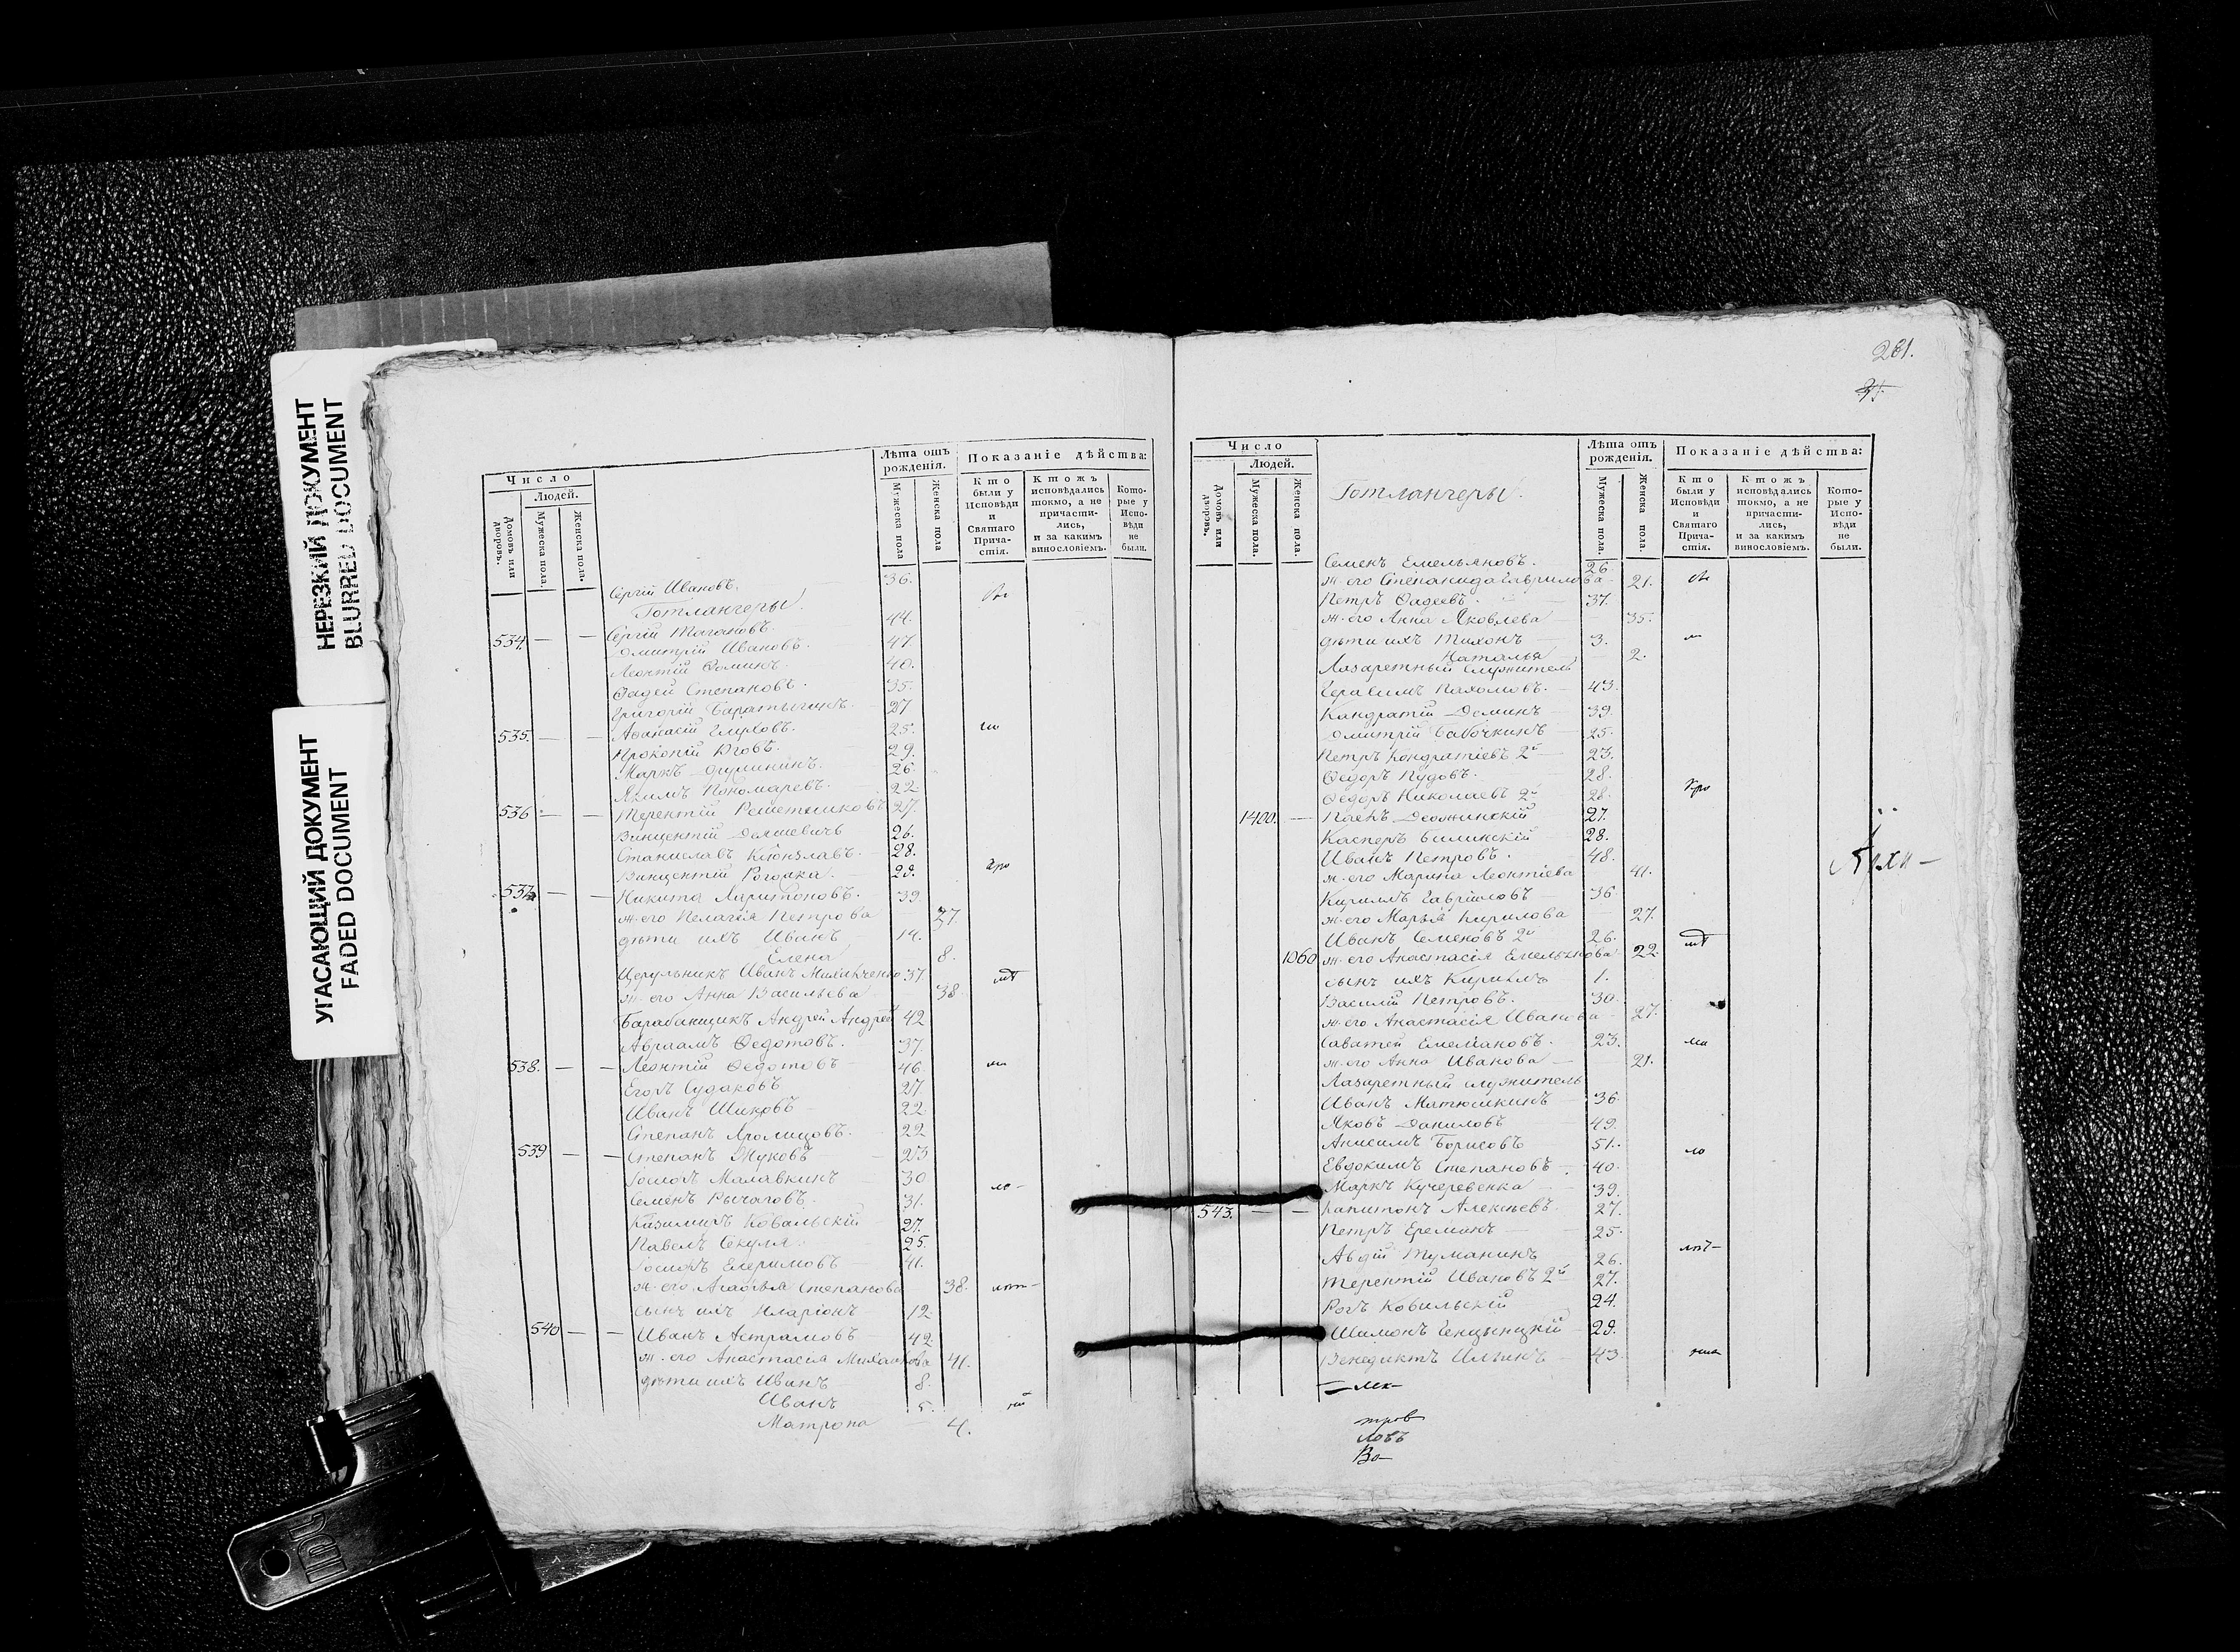 НЕРЕЗКИЙ ДОКУМЕНТ
BLURRED DOCUMENT
УГАСАЮЩИЙ ДОКУМЕНТ
FADED DOCUMENT
Число
Людей.
Домовъ или дворовъ.
Мужеска пола.
Женска пола.
Лѣта отъ рожденія.
Мужеска пола
Женска пола
Показаніе дѣйства:
Кто были у Исповѣди и Святаго Прича-стія.
Ктожъ исповѣдались токмо, а не причасти-лись, и за какимъ винословіемъ.
Кото-рые у Испо-вѣди не были.
Сергій Ивановъ. 36.
Готлангеры.
534. — — Сергій 44.
Дмитрій Ивановъ. 47.
Леонтій Фоминъ. 40.
Фадей Степановъ. 35.
Григорій 27
535. — — Афанасій Глуховъ. 25.
Прокопій 29.
Маркъ 26
Якимъ Пономаревъ. 22
536 — — Терентій Решетниковъ 27.
Винцентій 26.
Станиславъ 28.
Винцентій Рогоцка. 29.
537 — — Никита Харитоновъ. 39.
ж. его Пелагія Петрова 27.
дѣти ихъ Иванъ 14.
Елена 8.
Цирульникъ Иванъ 37
ж. его Анна Васильева 38.
Барабанщикъ Андрей Андрей 42
Авраамъ Федотовъ. 37.
538. — — Леонтій Федотовъ 46.
Егоръ Судаковъ 27
Иванъ 22
Степанъ 22
539 — — Степанъ Жуковъ 23
Іосифъ Малавкинъ 30
Семенъ Рычаговъ. 31.
Казимиръ Ковальскій 27.
Павелъ Секуля. 25.
Іосифъ 41.
ж. его Агафія Степанова 38.
сынъ ихъ Иларіонъ 12.
540 — — Иванъ 42
ж. его Анастасія 41.
дѣти ихъ Иванъ 8.
Иванъ 5.
Матрона 4.
281.
Число
Людей.
Домовъ или дворовъ.
Мужеска пола.
Женска пола.
Готлангеры.
Лѣта отъ рожденія.
Мужеска пола.
Женска пола.
Показаніе дѣйства:
Кто были у Исповѣди и Святаго Прича-стія.
Ктожъ исповѣдались токмо, а не причасти-лись, и за какимъ винословіемъ.
Кото-рые у Испо-вѣди не были.
Семенъ Емельяновъ. 26.
ж. его Степанида Гаврилова 21.
Петръ Фадеевъ. 37.
ж. его Анна Яковлева 35.
дѣти ихъ Тихонъ 3.
Наталья 2.
Лазаретный служитель
Герасимъ Пахомовъ. 43.
Кандратій Деминъ 39.
Дмитрій Бабочкинъ 25.
Петръ Кондратіевъ 2й 23.
Федоръ Пудовъ. 28.
Федоръ Николаевъ 2й 28.
1400. — 27.
Касперъ Билинскій 28.
Иванъ Петровъ. 48.
ж. его Марина Леонтіева 41.
Кирилъ Гавриловъ 36.
ж. его Марья Кирилова 27.
Иванъ Семеновъ 2й 26.
1060 ж. его Анастасія Емельянова 22.
сынъ ихъ Кирилъ 1.
Василій Петровъ. 30.
ж. его Анастасія Иванова 27.
Саватей 23.
ж. его Анна Иванова 21.
Лазаретный служитель
Иванъ Матюшкинъ 36.
Яковъ Даниловъ 49.
Анисимъ Борисовъ 51.
Евдокимъ Степановъ. 40.
Маркъ Кучеревенка 39.
543. — — Капитонъ Алексѣевъ. 27.
Петръ Ереминъ 25.
Авдій Туманинъ 26.
Терентій Ивановъ 2й 27.
24.
Шимонъ 29.
Венедиктъ Ильинъ 43.
Архи—
тров
ловъ
Во—